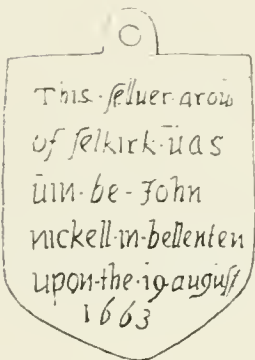 This · ſelluer · arou
of ſelkirk · üas
üin · be - John
nickell · in · bellenten
upon · the · 19 · auguſt
1663